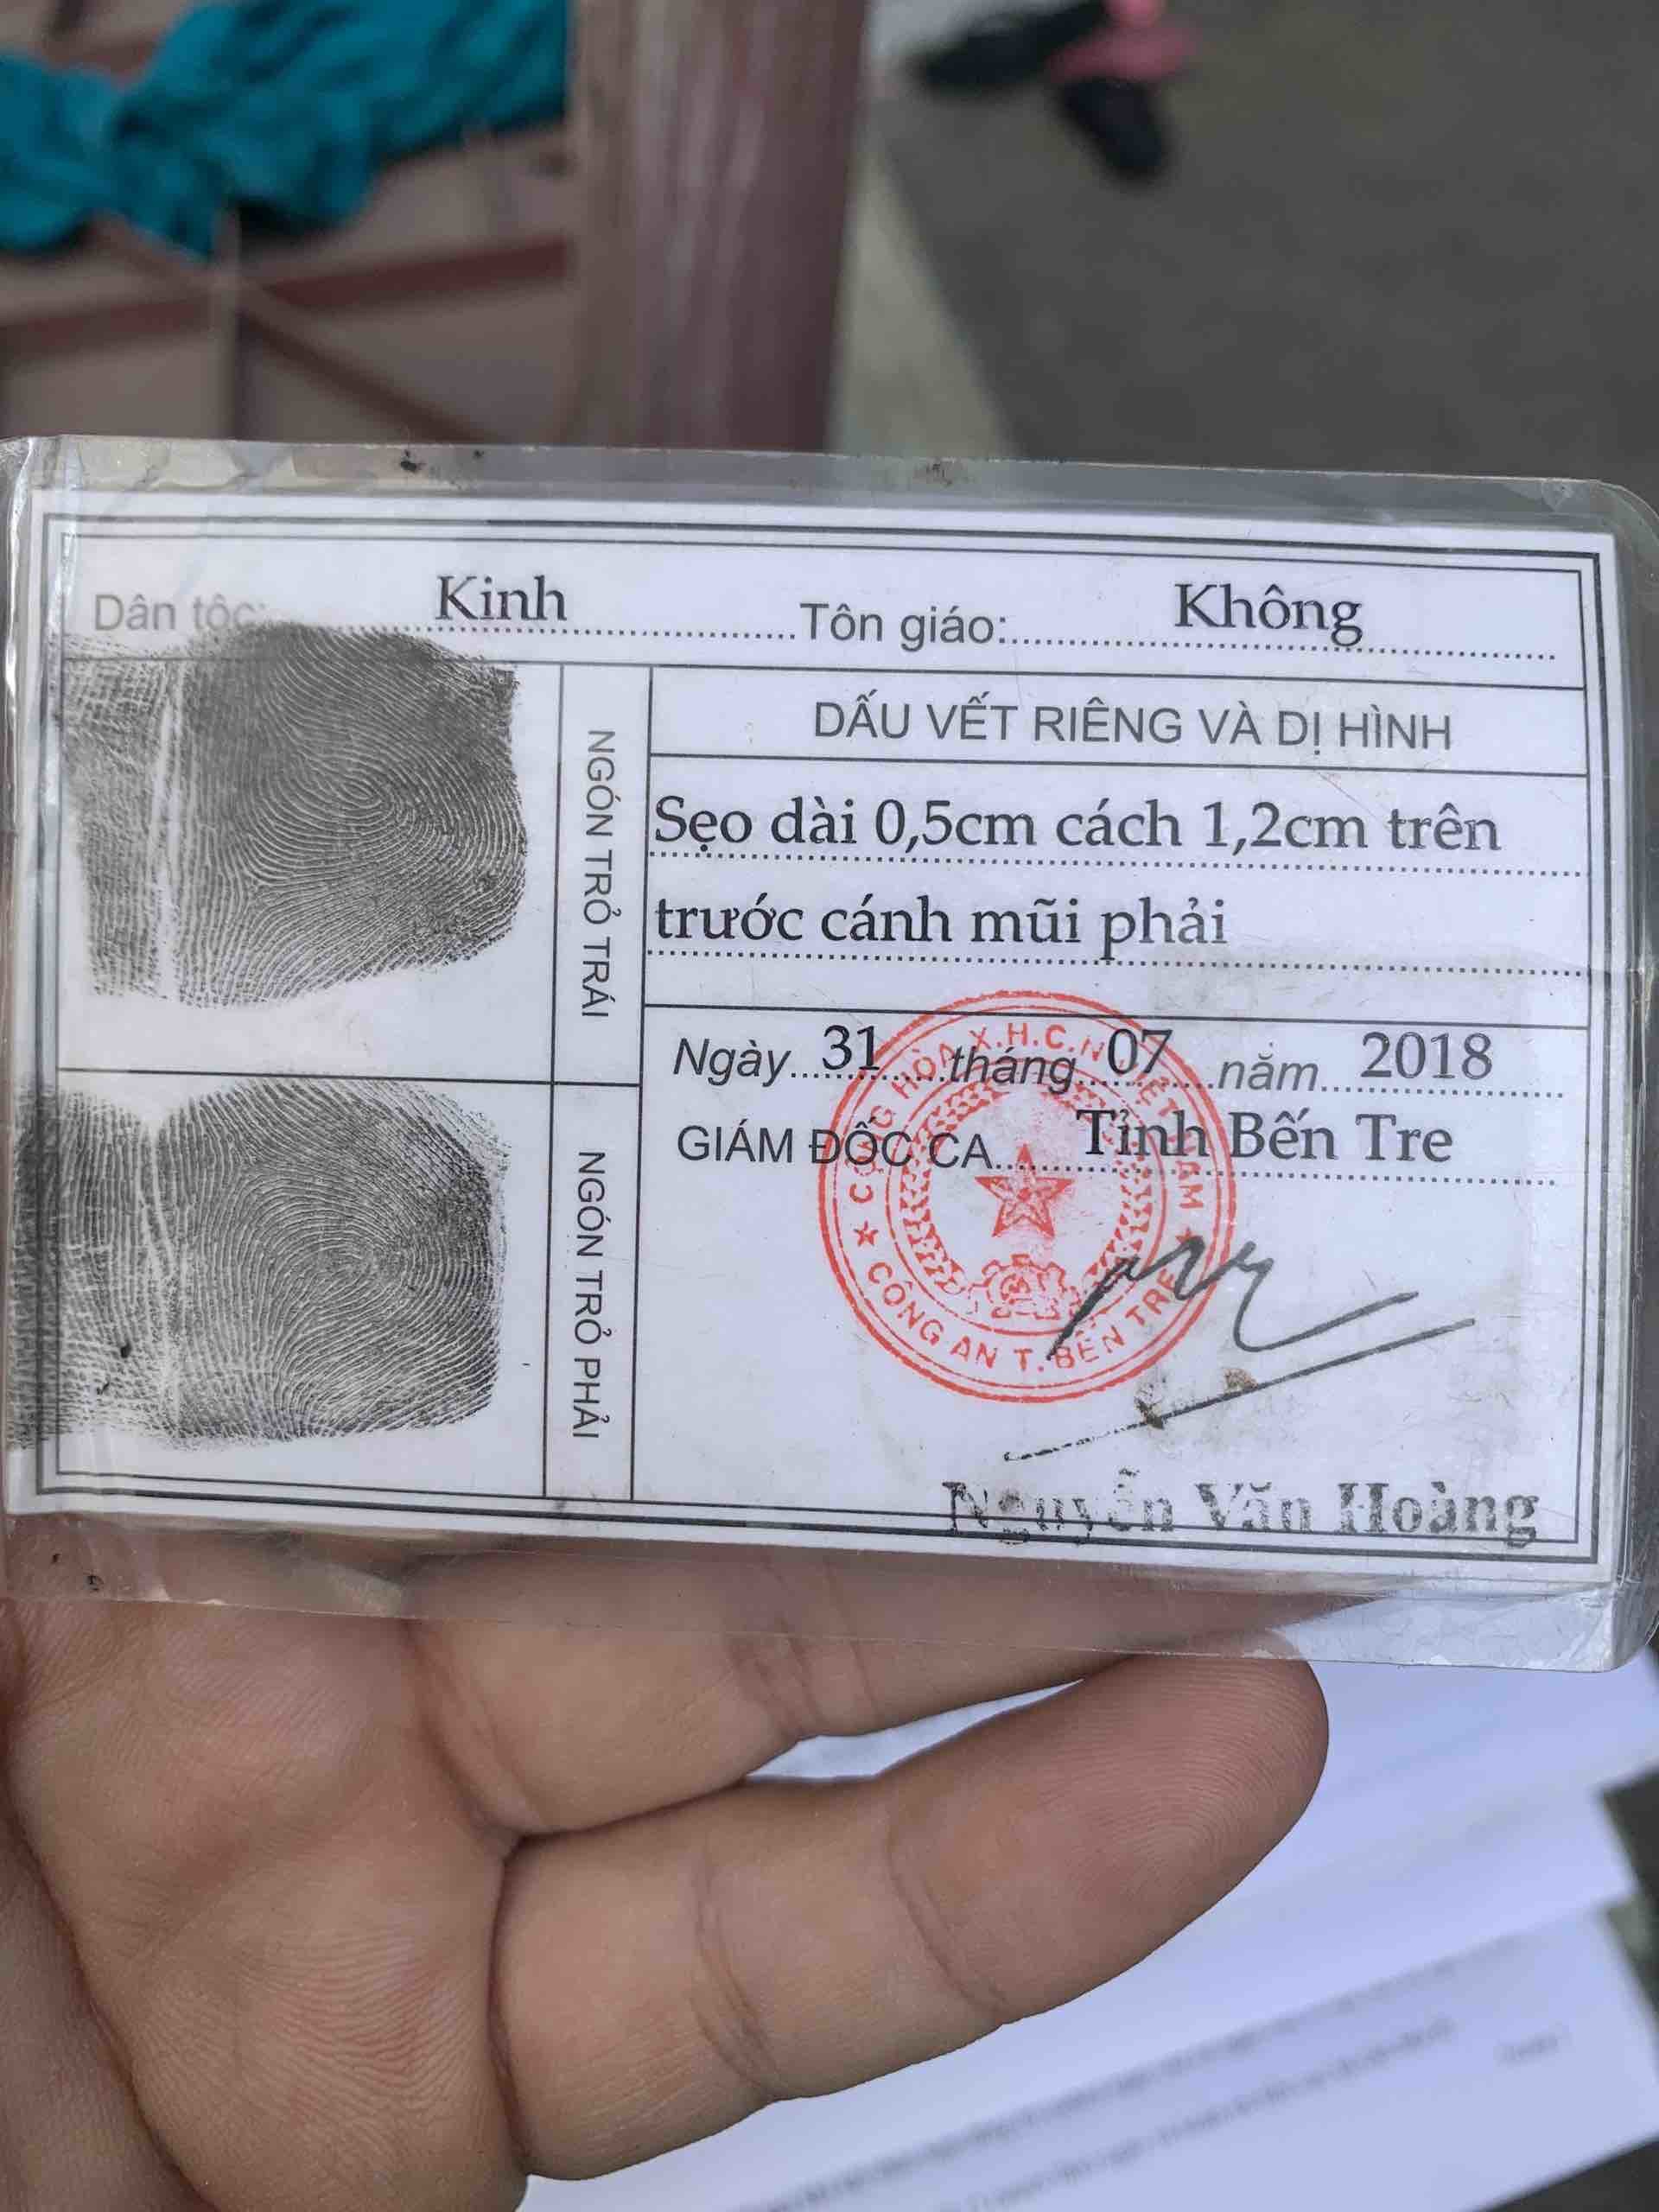 Dân tộc: Kinh Tôn giáo: Không
NGÓN TRỎ TRÁI
DẤU VẾT RIÊNG VÀ DỊ HÌNH
Sẹo dài 0,5cm cách 1,2cm trên
trước cánh mũi phải
NGÓN TRỎ PHẢI
Ngày 31 tháng 07 năm 2018
GIÁM ĐỐC CA Tỉnh Bến Tre
CỘNG HÒA X.H.C.N VIỆT NAM
CÔNG AN T. BẾN TRE
Nguyễn Văn Hoàng